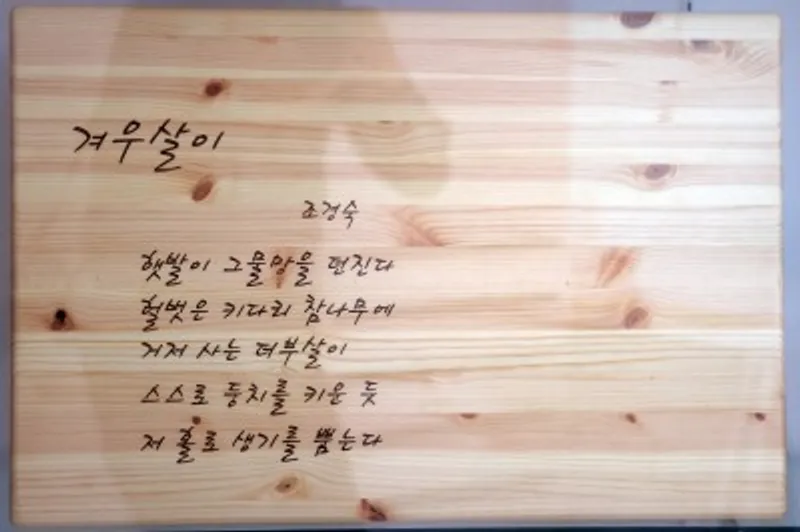 겨우살이
조경숙
햇발이 그물망을 던진다
헐벗은 키다리 참나무에
거저 사는 더부살이
스스로 둥치를 키운 듯
저 홀로 생기를 뿜는다